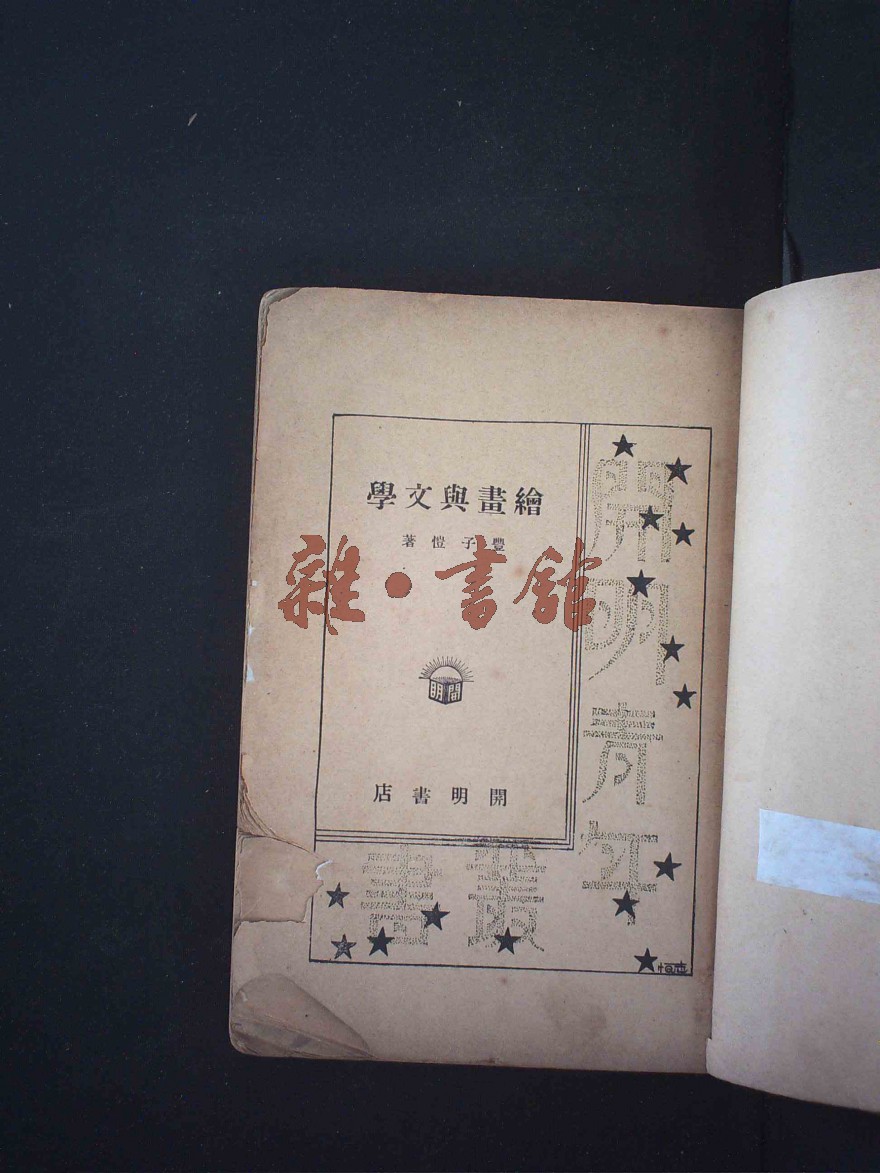 繪畫與文學
豐子愷著
開明
開明書店
開明青年
叢書
雜·書館